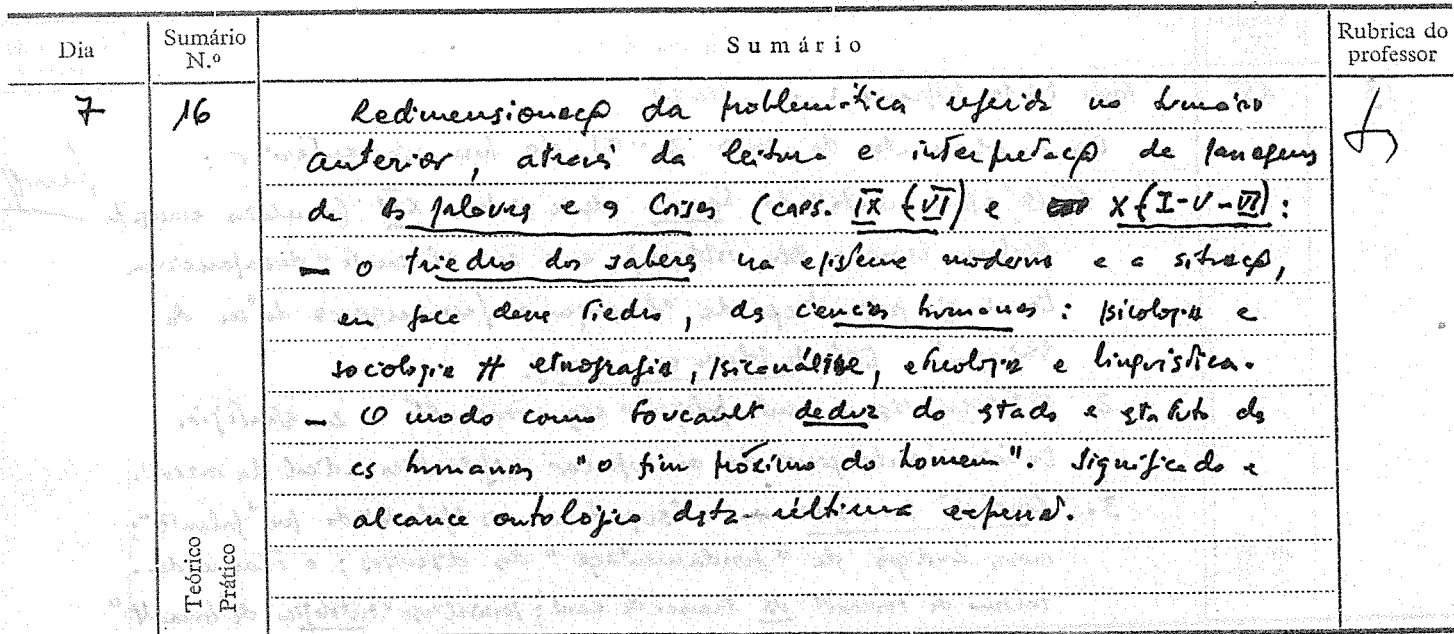 Dia
Sumário N.º
Sumário
Rubrica do professor
7
16
Redimensionação da problemática referida no sumário
anterior, através da leitura e interpretação de passagens
de As palavras e as Coisas (caps. IX (VI) e X (I-V-VI):
— O triedro dos saberes na episteme moderna e a situação,
em face desse triedro, das ciencias humanas: psicologia e
sociologia # etnografia, psicanálise, etnologia e linguística.
— O modo como Foucault deduz do estado e estatuto das
cs humanas "o fim próximo do homem". Significado e
alcance ontológico desta última expressão.
Teórico
Prático